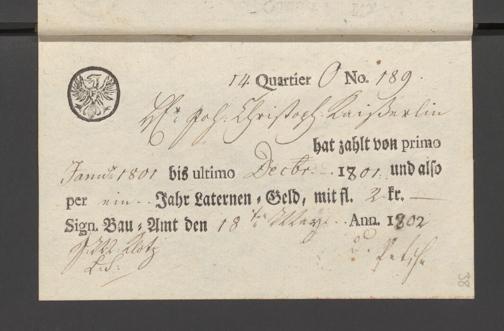 14 Quartier O No. 189.
Joh. Christoph Kaißerlin
hat zahlt von primo
Januar 1801 bis ultimo Decbr. 1801. und also
per ein Jahr Laternen-Geld, mit fl. 2 kr. —
Sign. Bau-Amt den 18 May. Ann. 1802
Klotz
38